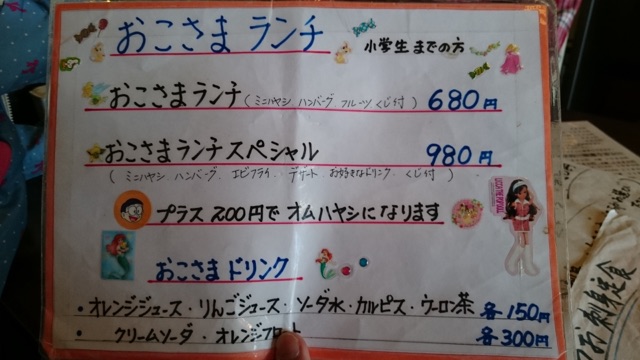 おこさまランチ 小学生までの方
おこさまランチ (ミニハヤシ ハンバーグ フルーツ くじ付) 680円
おこさまランチスペシャル 980円
(ミニハヤシ ハンバーグ. エビフライ. デザート お好きなドリンク. くじ付)
プラス 200円で オムハヤシになります
おこさまドリンク
・オレンジジュース・りんごジュース・ソーダ水・カルピス・ウーロン茶 各150円
・クリームソーダ・オレンジフロート 各300円
刺身定食